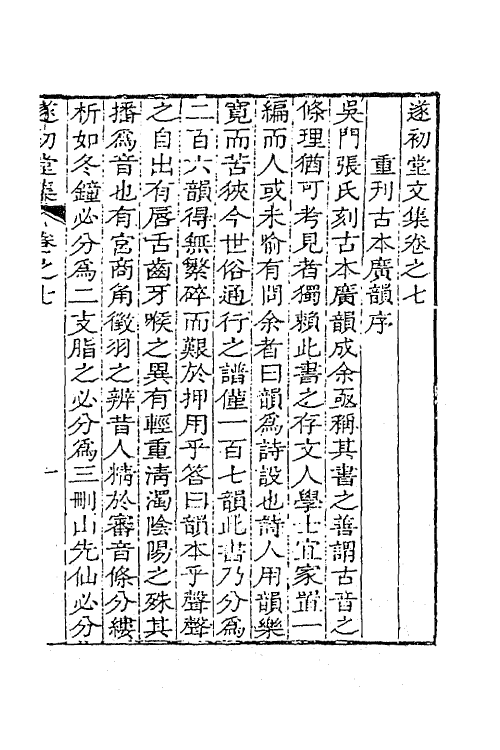 遂初堂文集卷之七
重刊古本廣韻序
吳門張氏刻古本廣韻成余亟稱其書之善謂古音之
條理猶可考見者獨賴此書之存文人學士宜家置一
編而人或未喻有問余者曰韻為詩設也詩人用韻樂
寛而苦狹今世俗通行之譜僅一百七韻此書乃分為
二百六韻得無繁碎而艱於押用乎答曰韻本乎聲聲
之自出有唇舌齒牙喉之異有輕重清濁陰陽之殊其
播為音也有宮商角徵羽之辨昔人精於審音條分縷
析如冬鐘必分為二支脂之必分為三刪山先仙必分
遂初堂集
卷之七
一